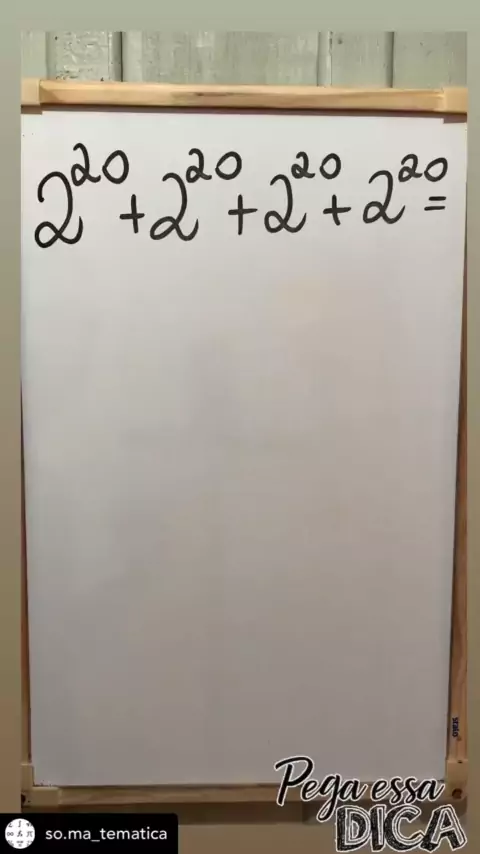 2²⁰ + 2²⁰ + 2²⁰ + 2²⁰ =
stalo
Pega essa
DICA
so.ma_tematica